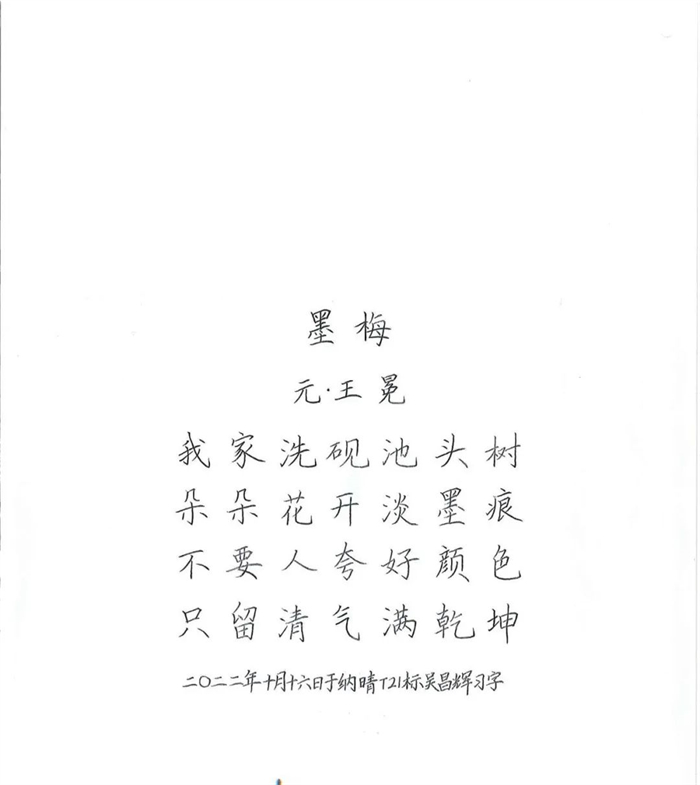 墨梅
元·王冕
我家洗砚池头树
朵朵花开淡墨痕
不要人夸好颜色
只留清气满乾坤
二〇二二年十月十六日于纳晴T21标吴昌辉习字